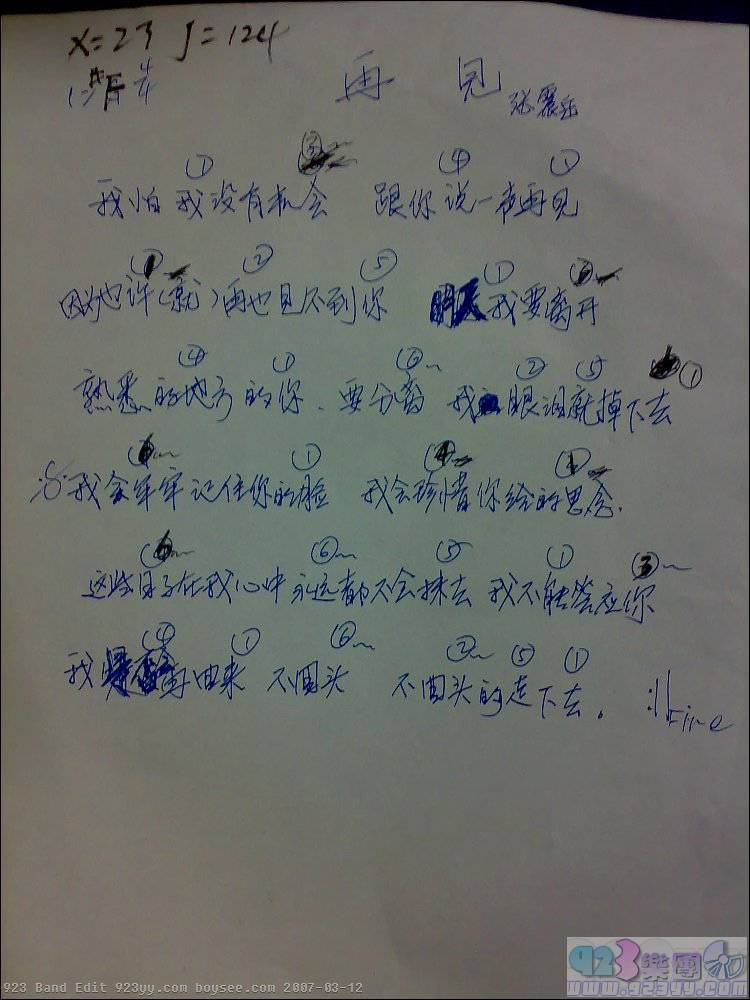 X=23 J=124
1=F 4/4
再 见 张震岳
① ③ ④ ①
我怕我没有机会 跟你说一声再见
① ② ⑤ ① ⑥
因为也许(就)再也见不到你 明天我要离开
④ ① ⑥ ② ⑤ ①
熟悉的地方的你、要分离 我眼泪就掉下去
① ④
我会牢牢记住你的脸 我会珍惜你给的思念.
⑥ ⑤ ① ③
这些日子在我心中永远都不会抹去 我不能答应你
④ ① ⑥ ② ⑤ ①
我 再回来 不回头 不回头的走下去。 :|| Fine
923 Band Edit 923yy.com boysee.com 2007-03-12
923樂團
www.923yy.com